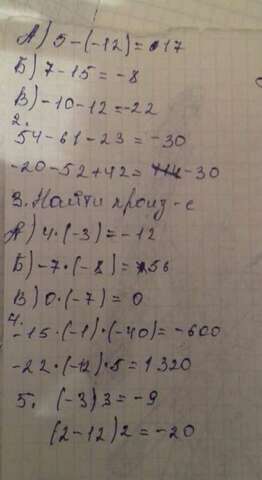 А) 5-(-12)=17
Б) 7-15=-8
В) -10-12=-22
2.
54-61-23=-30
-20-52+42=-30
3. Найти произ-е
А) 4·(-3)=-12
Б) -7·(-8)=56
В) 0·(-7)=0
4.
-15·(-1)·(-40)=-600
-22·(-12)·5=1320
5. (-3)3=-9
(2-12)2=-20